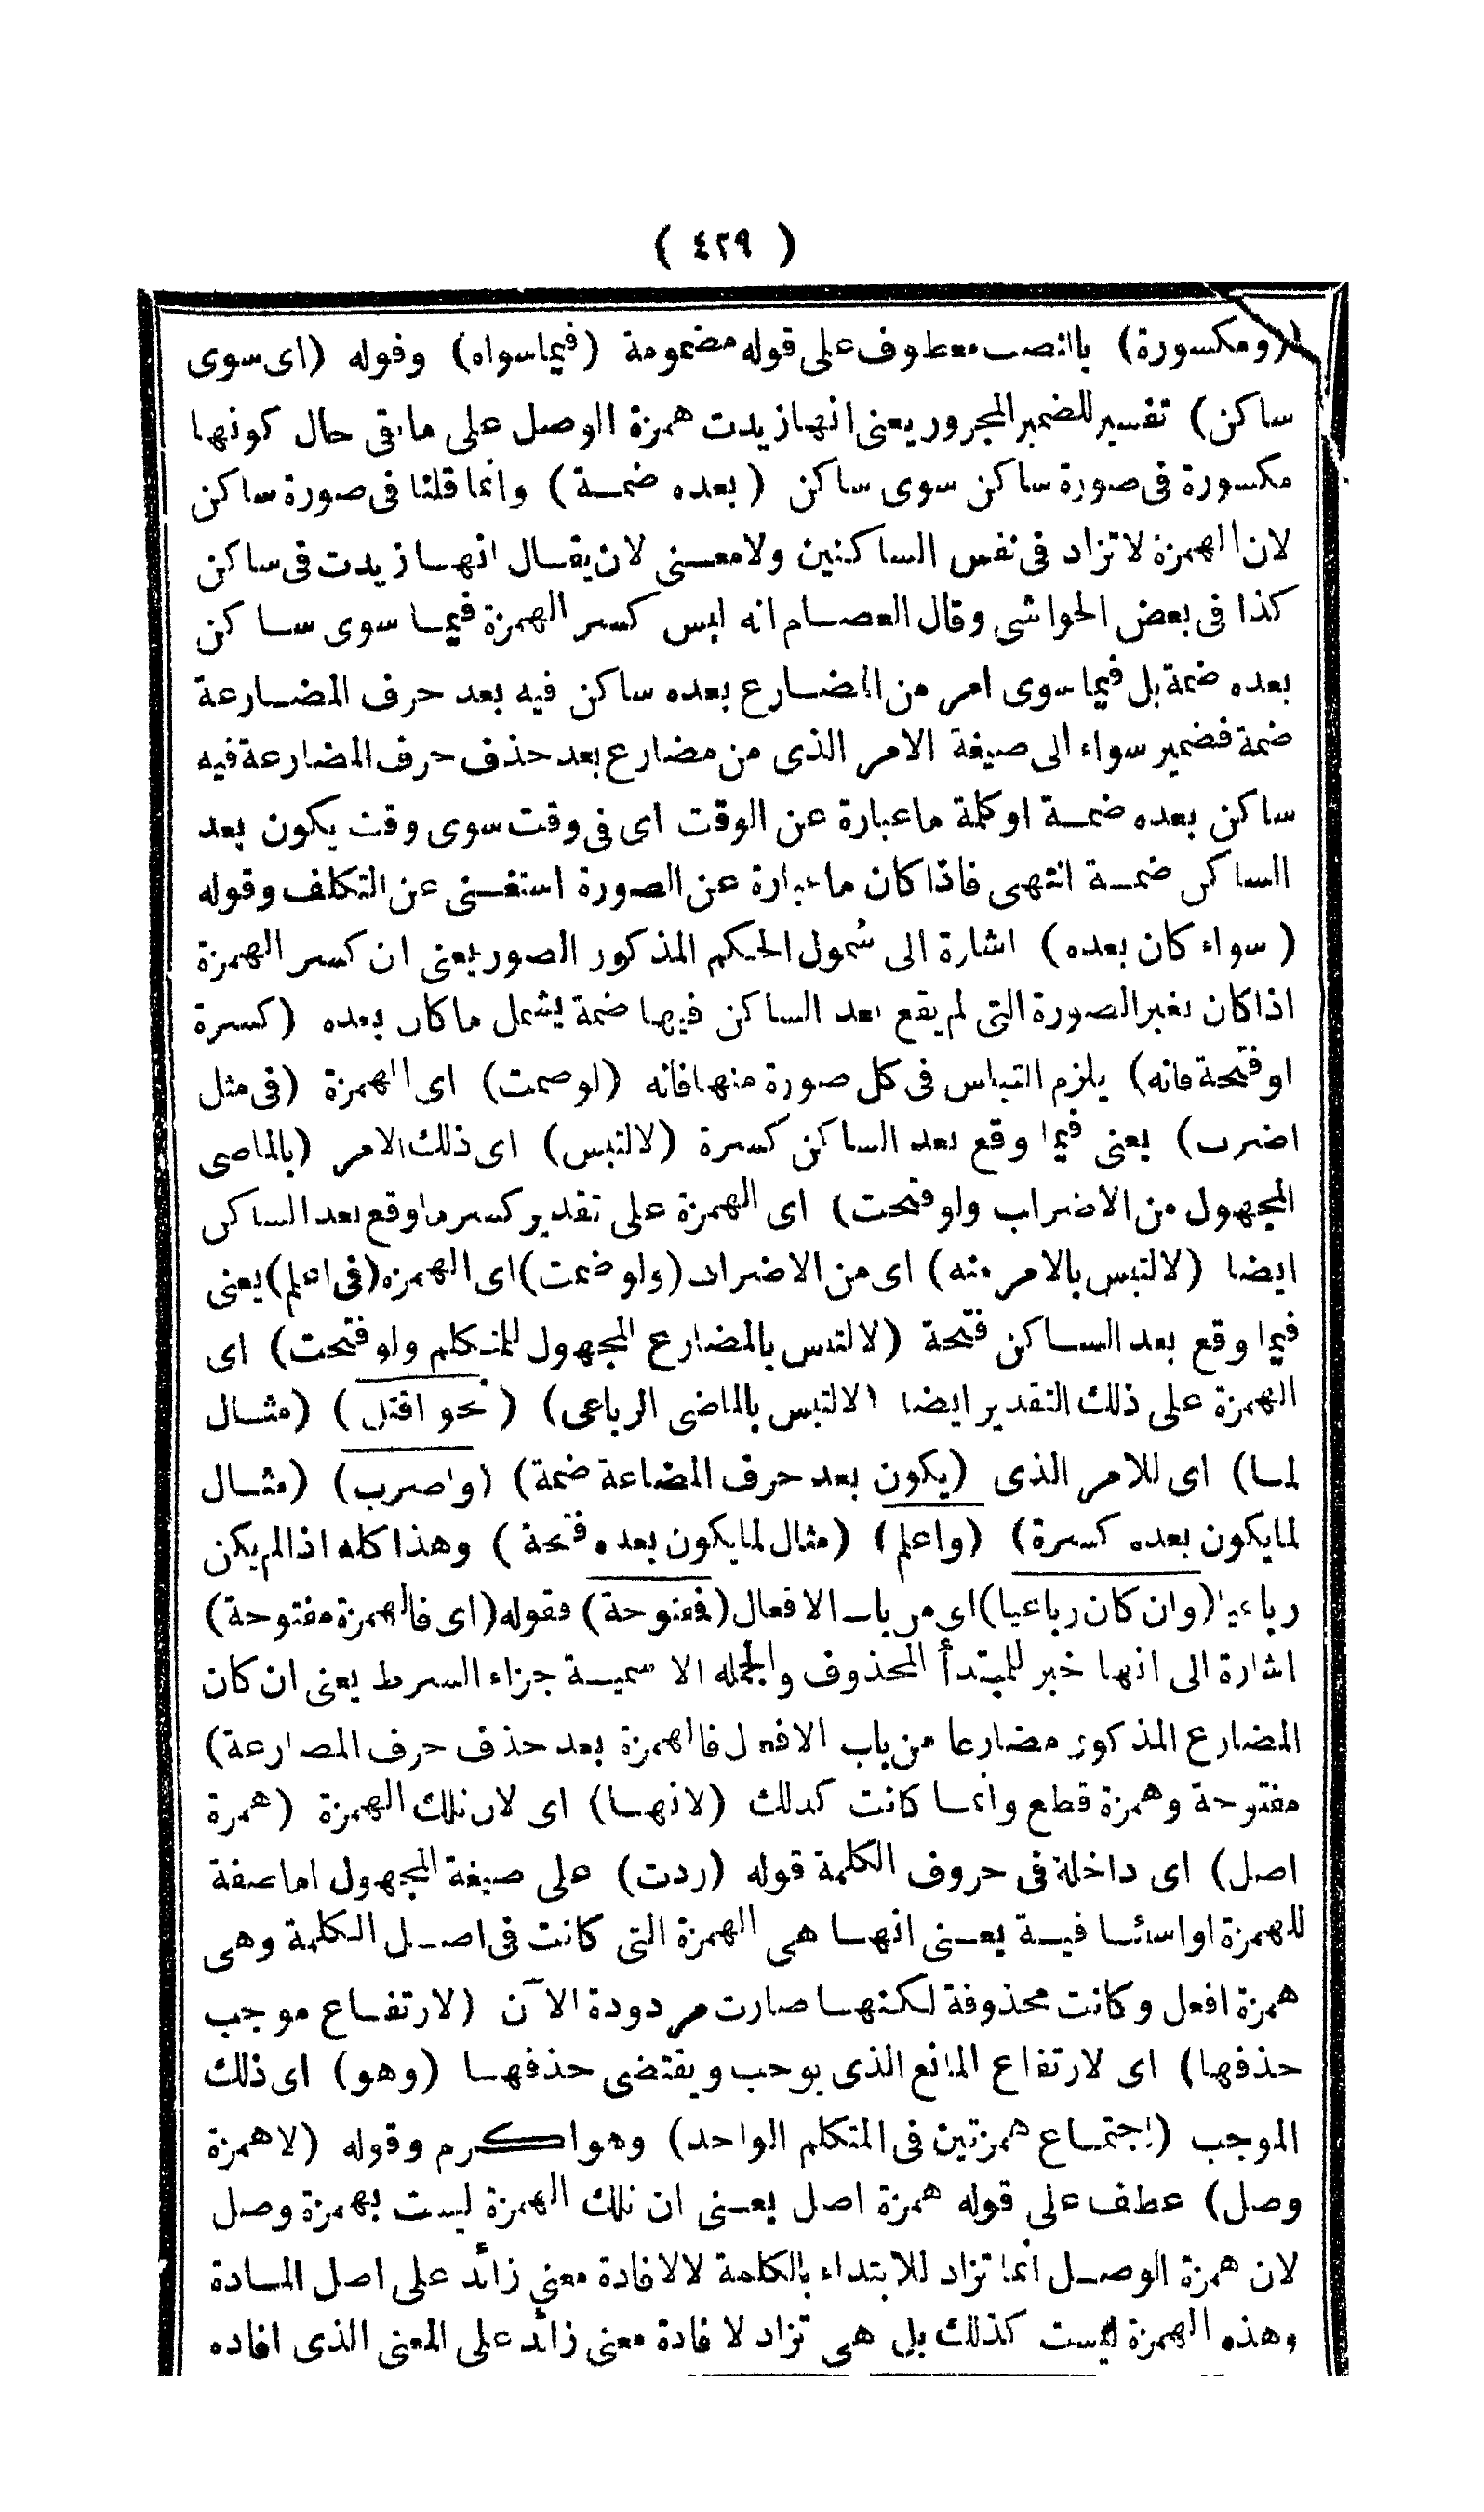 ( ٤٢٩ )
(ومكسورة) بالنصب معطوف على قوله مضمومة (فيماسواه) وقوله (اى سوى
ساكن) تفسير للضمير المجرور يعنى انها زيدت همزة الوصل على مابقى حال كونها
مكسورة فى صورة ساكن سوى ساكن (بعده ضمة) وانما قلنا فى صورة ساكن
لان الهمزة لا تزاد فى نفس الساكنين ولا معنى لان يقال انها زيدت فى ساكن
كذا فى بعض الحواشى وقال العصام انه ليس كسر الهمزة فيما سوى ساكن
بعده ضمة بل فيما سوى امر من المضارع بعده ساكن فيه بعد حرف المضارعة
ضمة فضمير سواء الى صيغة الامر الذى من مضارع بعد حذف حرف المضارعة فيه
ساكن بعده ضمة اوكلمة ماعبارة عن الوقت اى فى وقت سوى وقت يكون بعد
الساكن ضمة انتهى فاذا كان ماعبارة عن الصورة استغنى عن التكلف وقوله
(سواء كان بعده) اشارة الى شمول الحكم المذكور الصور يعنى ان كسر الهمزة
اذا كان بغير الصورة التى لم يقع بعد الساكن فيها ضمة يشمل ماكان بعده (كسرة
اوفتحة فانه) يلزم التباس فى كل صورة منها فانه (لو ضمت) اى الهمزة (فى مثل
اضرب) يعنى فيما وقع بعد الساكن كسرة (لالتبس) اى ذلك الامر (بالماضى
المجهول من الاضراب ولو فتحت) اى الهمزة على تقدير كسر ماوقع بعد الساكن
ايضا (لالتبس بالامر منه) اى من الاضراب (ولو ضمت) اى الهمزه (فى اعلم) يعنى
فيما وقع بعد الساكن فتحة (لالتبس بالمضارع المجهول للمتكلم ولو فتحت) اى
الهمزة على ذلك التقدير ايضا (لالتبس بالماضى الرباعى) (نحو اقتل) (مثال
لما) اى للامر الذى (يكون بعد حرف المضاعة ضمة) (واضرب) (مثال
لمايكون بعده كسرة) (واعلم) (مثال لمايكون بعده فتحة) وهذا كله اذا لم يكن
رباعيا (وان كان رباعيا) اى من باب الافعال (ففتوحة) فقوله (اى فالهمزة مفتوحة)
اشارة الى انها خبر للمبتدأ المحذوف والجمله الاسمية جزاء الشرط يعنى ان كان
المضارع المذكور مضارعا من باب الافعل فالهمزة بعد حذف حرف المضارعة)
مفتوحة وهمزة قطع وانما كانت كذلك (لانها) اى لان تلك الهمزة (همزة
اصل) اى داخلة فى حروف الكلمة قوله (ردت) على صيغة المجهول اماصفة
للهمزة او استئنافية يعنى انها هى الهمزة التى كانت فى اصل الكلمة وهى
همزة افعل وكانت محذوفة لكنها صارت مردودة الآن (لارتفاع موجب
حذفها) اى لارتفاع المانع الذى يوجب ويقتضى حذفها (وهو) اى ذلك
الموجب (اجتماع همزتين فى المتكلم الواحد) وهو اكرم وقوله (لاهمزة
وصل) عطف على قوله همزة اصل يعنى ان تلك الهمزة ليست بهمزة وصل
لان همزة الوصل انما تزاد للابتداء بالكلمة لالافادة معنى زائد على اصل المادة
وهذه الهمزة ليست كذلك بل هى تزاد لافادة معنى زائد على المعنى الذى افاده